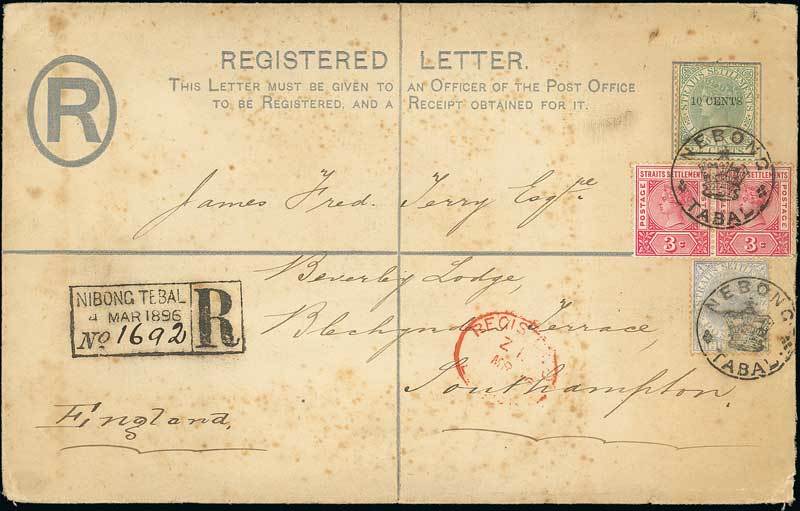 REGISTERED LETTER.
THIS LETTER MUST BE GIVEN TO AN OFFICER OF THE POST OFFICE
TO BE REGISTERED, AND A RECEIPT OBTAINED FOR IT.
R
STRAITS SETTLEMENTS
10 CENTS
NEBONG
TABAL
STRAITS SETTLEMENTS
POSTAGE
POSTAGE
3
STRAITS SETTLEMENTS
POSTAGE
POSTAGE
3
James Fred. Terry Esqre
Beverley Lodge,
NIBONG TEBAL
4 MAR 1896
No 1692
R
NEBONG
TABAL
Blechynd Terrace,
REGIS
MR
Southampton.
England.